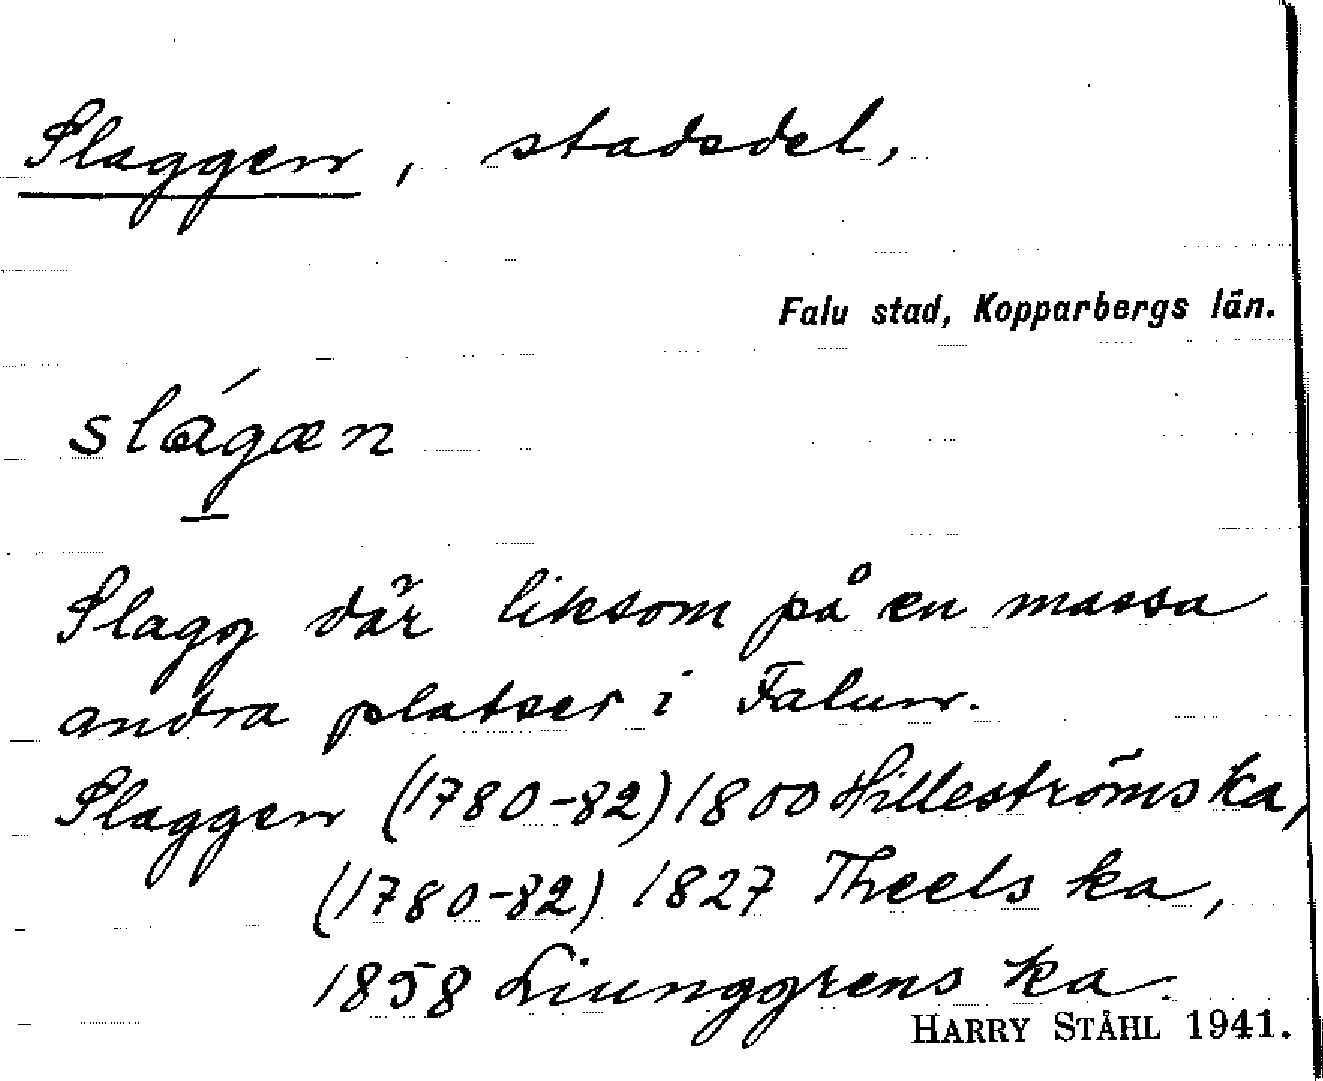 Slaggen, stadsdel,
Falu stad, Kopparbergs län.
slágæn
Slagg där liksom på en massa
andra platser i Falun.
Slaggen (1780-82) 1800 Hilleströms ka,
(1780-82) 1827 Theels ka,
1858 Liunggrens ka.
HARRY STÅHL 1941.